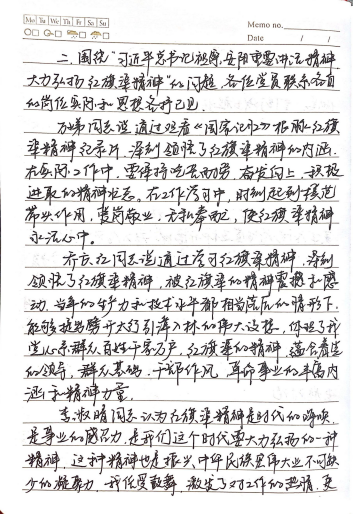 Mo Tu We Th Fr Sa Su
Memo no.
Date / /
二、围绕"习近平总书记视察安阳重要讲话精神,
大力弘扬红旗渠精神"的问题,各位党员联系各自
的岗位实际和思想各抒己见。
同志说通过观看《国家记忆》根红旗
渠精神纪录片,深刻领悟了红旗渠精神的内涵,
在实际工作中,要保持吃苦耐劳、奋发向上、积极
进取的精神状态。在工作学习中,时刻起到模范
带头作用,爱岗敬业,无私奉献,使红旗渠精神
永远心中。
齐 红同志说通过学习红旗渠精神,深刻
领悟了红旗渠精神,被红旗渠的精神震撼和感
动,当年的生产力和技术水平都相当落后的情形下,
能够提出劈开太行引漳入林的伟大设想,体现了我
党心系群众百姓千家万户,红旗渠的精神,蕴含着党
的领导、群众基础、干部作风、革命事业的丰富内
涵和精神力量。
李淑晴同志认为红旗渠精神是时代的呼唤,
是事业的感召力,是我们这个时代要大力弘扬的一种
精神,这种精神也是振兴中华民族里伟大业不可缺
少的凝聚力,我倍受鼓舞,激发了对工作的热情,更